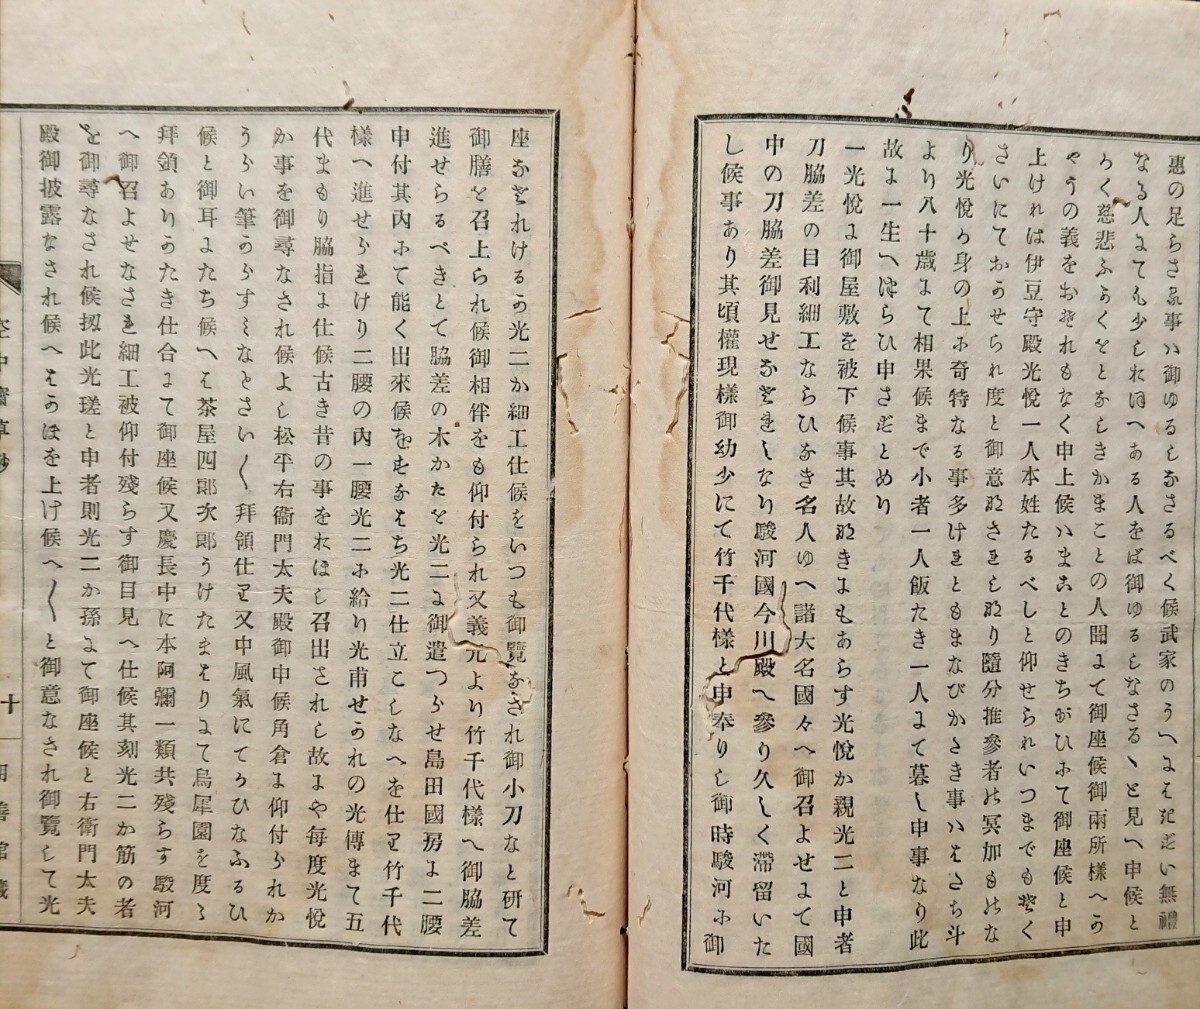 惠の足らさる事ハ御ゆるしなさるべく候武家のうへにはたとい無禮
なる人にても少しれほへある人をば御ゆるしなさるゝと見へ申候と
かく慈悲ふかくをとなしきかまことの人間にて御座候御兩所様への
やうの義をおそれもなく申上候ハまことのきちがひにて御座候と申
上けれは伊豆守殿光悅一人本姓たるべしと仰せられいつまでも堅く
さいにておかせられ度と御意なされしなり隨分推參者の冥加ものな
り光悅か身の上に奇特なる事多けれともまなびかたき事ハはたち斗
より八十歳まて相果候まで小者一人飯たき一人にて暮し申事なり此
故に一生へつらひ申さすとめり
一光悅に御屋敷を被下候事其故なきにもあらす光悅か親光二と申者
刀脇差の目利細工ならひなき名人ゆへ諸大名國々へ御召よせにて國
中の刀脇差御見せなされしなり駿河國今川殿へ參り久しく滯留いた
し候事あり其頃權現様御幼少にて竹千代様と申奉りし御時駿河に御
座なされけるか光二か細工仕候をいつも御覽なされ御小刀なと研て
御膳を召上られ候御相伴をも仰付られ又義元より竹千代様へ御脇差
進せらるべきとて脇差の木かたを光二に御遣つかせ島田國房に二腰
申付其內にて能く出來候をすなはち光二仕立こしなへを仕立竹千代
様へ進せられけり二腰の內一腰光二に給り光甫せかれの光傳まて五
代まもり脇指に仕候古き昔の事をれほし召出されし故にや每度光悅
か事を御尋なされ候よし松平右衞門太夫殿御申候角倉に仰付られか
うらい筆のらすミなとさい〱拜領仕又中風氣にてかひなふるひ
候と御耳にたち候へは茶屋四郎次郎うけたまはりにて烏犀園を度々
拜領ありかたき仕合にて御座候又慶長中に本阿彌一類共殘らす駿河
へ御召よせなされ細工被仰付殘らす御目見へ仕候其刻光二か筋の者
を御尋なされ候扨此光瑳と申者則光二か孫にて御座候と右衞門太夫
殿御披露なされ候へはかほを上け候へ〱と御意なされ御覽して光
空中齋草抄
十